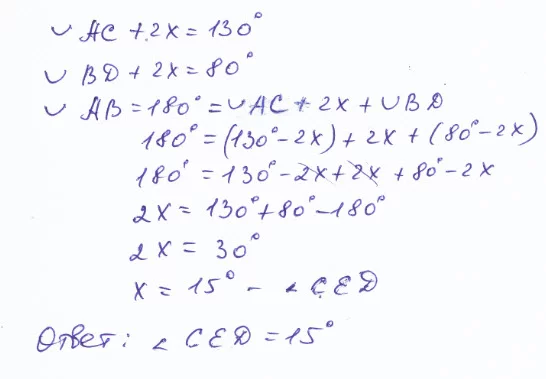 ∪ AC + 2x = 130°
∪ BD + 2x = 80°
∪ AB = 180° = ∪AC + 2x + ∪BD
180° = (130° - 2x) + 2x + (80° - 2x)
180° = 130° - 2x + 2x + 80° - 2x
2x = 130° + 80° - 180°
2x = 30°
x = 15° - ∠ CED
Ответ: ∠ CED = 15°